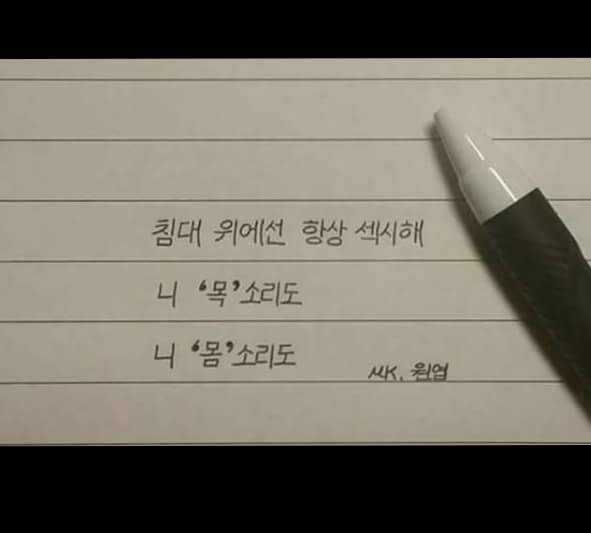 침대 위에선 항상 섹시해
니 ‘목’소리도
니 ‘몸’소리도
씨K. 원엽